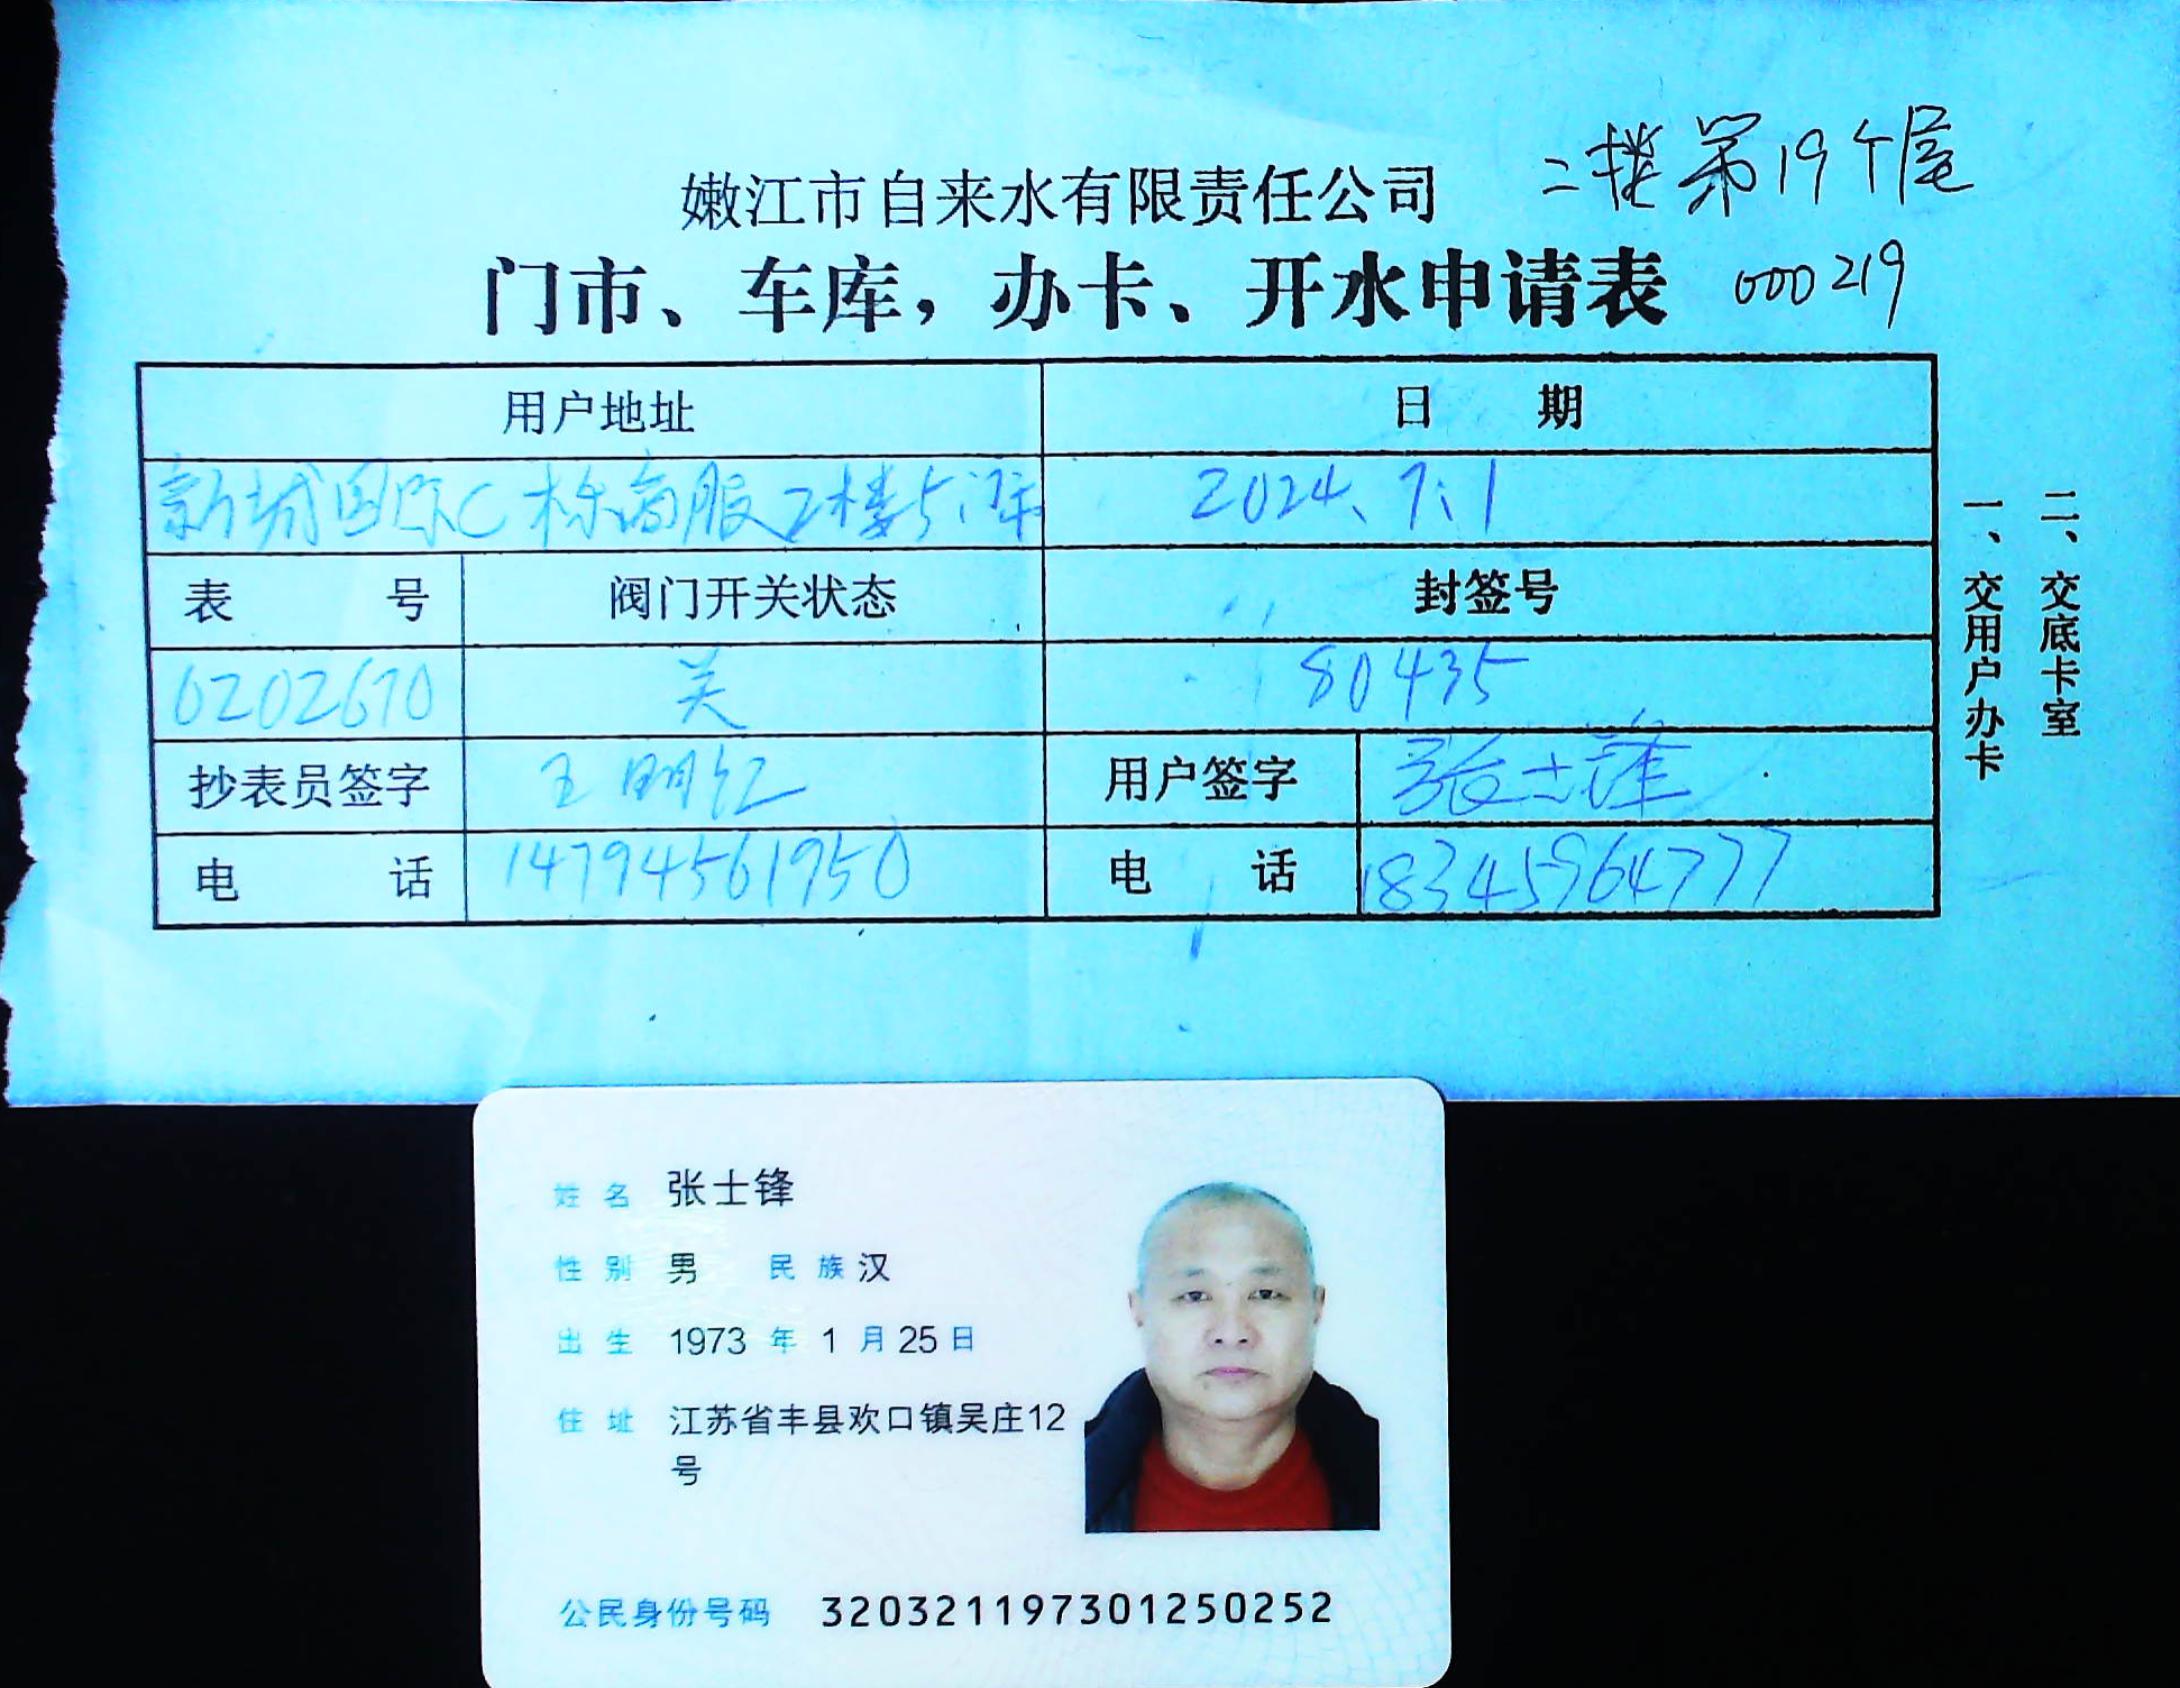 二楼第19个屋
嫩江市自来水有限责任公司
门市、车库，办卡、开水申请表 000219
用户地址 日 期
新城国际C栋商服2楼 2024、7、1
表 号 阀门开关状态 封签号
0202670 关 80435
抄表员签字 王明红 用户签字 张士锋
电 话 14794561950 电 话 18345964777
一、交用户办卡
二、交底卡室
姓名 张士锋
性别 男 民族 汉
出生 1973 年 1 月 25 日
住址 江苏省丰县欢口镇吴庄12
号
公民身份号码 320321197301250252